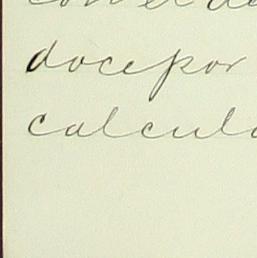 doce por
calcul